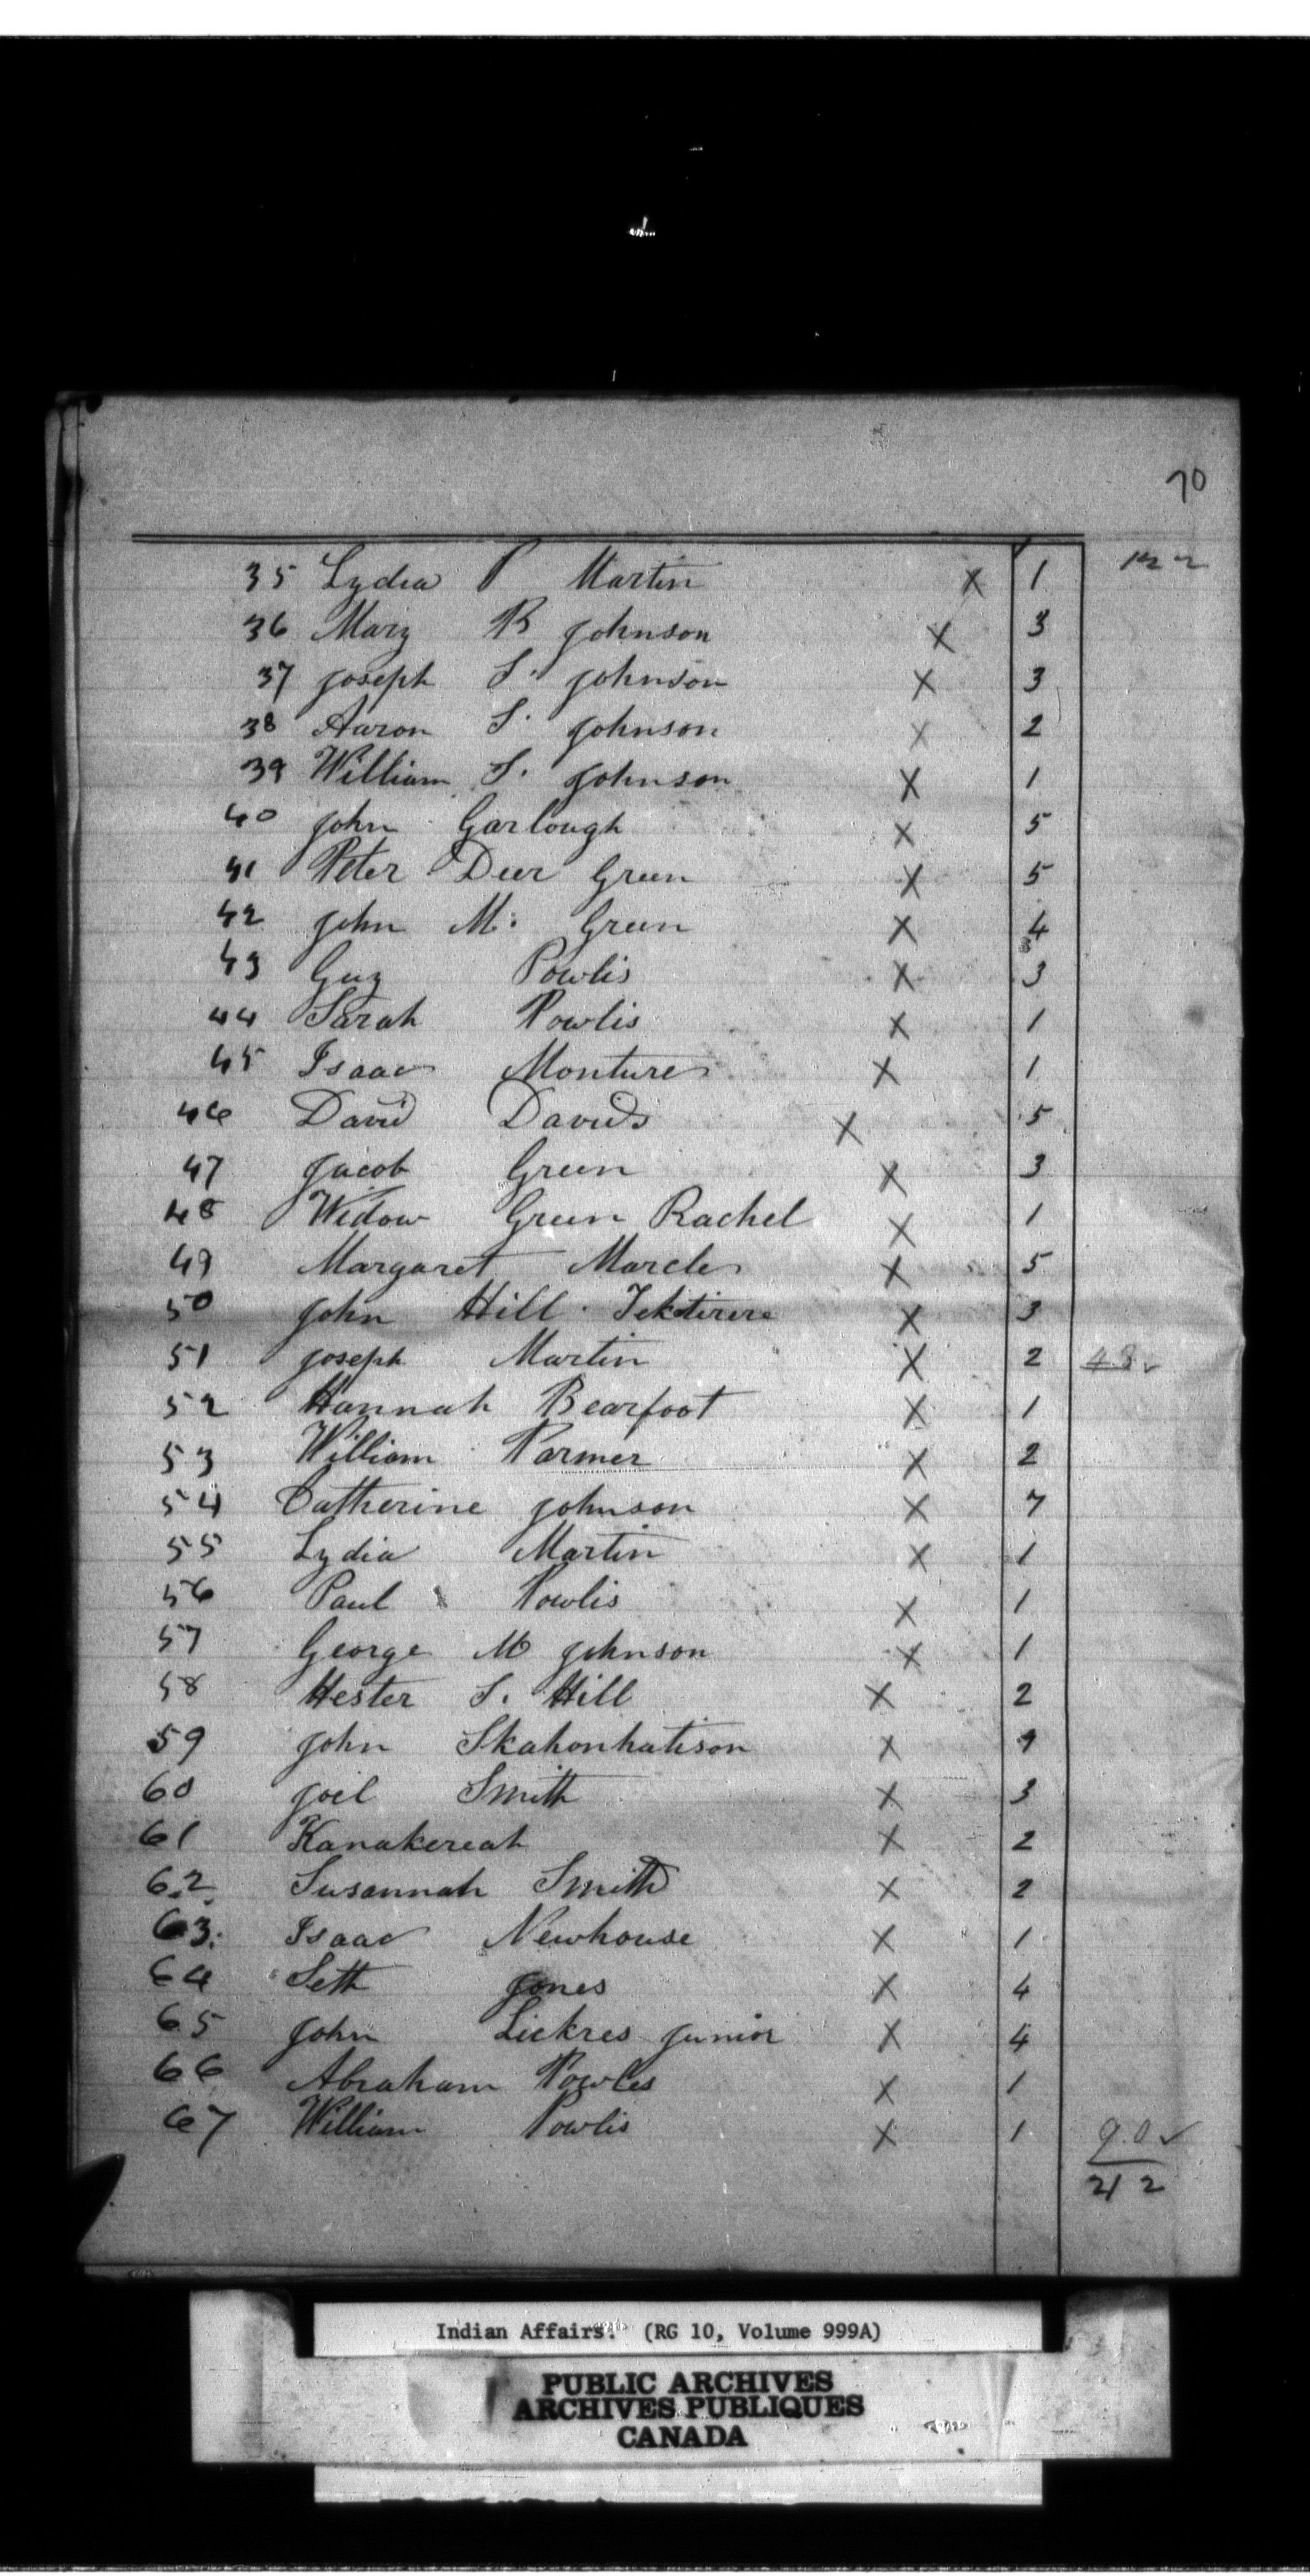 70
122
35 Lydia P Martin X 1
36 Mary B Johnson X 3
37 Joseph S. Johnson X 3
38 Aaron S. Johnson X 2
39 William S. Johnson X 1
40 John Garlough X 5
41 Peter Deer Green X 5
42 John M. Green X 4
43 Guy Powlis X 3
44 Sarah Powlis X 1
45 Isaac Monture X 1
46 David Davids X 5
47 Jacob Green X 3
48 Widow Green Rachel X 1
49 Margaret Marcle X 5
50 John Hill Tektirere X 3
51 Joseph Martin X 2 48
52 Hannah Bearfoot X 1
53 William Parmer X 2
54 Catherine Johnson X 7
55 Lydia Martin X 1
56 Paul Powlis X 1
57 George M Johnson X 1
58 Hester S. Hill X 2
59 John Skahonhatison X
60 Joel Smith X 3
61 Kanakereah X 2
62 Susannah Smith X 2
63 Isaac Newhouse X 1
64 Seth Jones X 4
65 John Lickres Junior X 4
66 Abraham Powles X 1
67 William Powlis X 1 90 ✓
212
Indian Affairs. (RG 10, Volume 999A)
PUBLIC ARCHIVES
ARCHIVES PUBLIQUES
CANADA